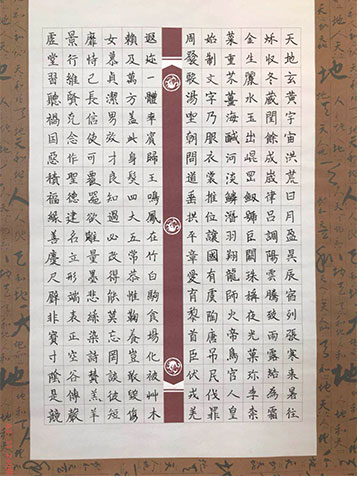 天地玄黃宇宙洪荒日月盈昃辰宿列張寒來暑往
秌收冬藏閏餘成歲律呂調陽雲騰致雨露結為霜
金生麗水玉出崐岡劍號巨闕珠稱夜光菓珍李柰
菜重芥薑海鹹河淡鱗潛羽翔龍師火帝鳥官人皇
始制文字乃服衣裳推位讓國有虞陶唐弔民伐罪
周發殷湯坐朝問道垂拱平章愛育黎首臣伏戎羌
遐迩一體率賓歸王鳴鳳在竹白駒食場化被艸木
賴及萬方蓋此身髮四大五常恭惟鞠養豈敢毀傷
女慕貞潔男效才良知過必改得能莫忘罔談彼短
靡恃己長信使可覆器欲難量墨悲絲染詩讚羔羊
景行維賢克念作聖德建名立形端表正空谷傳聲
虛堂習聽禍因惡積福緣善慶尺璧非寶寸陰是競